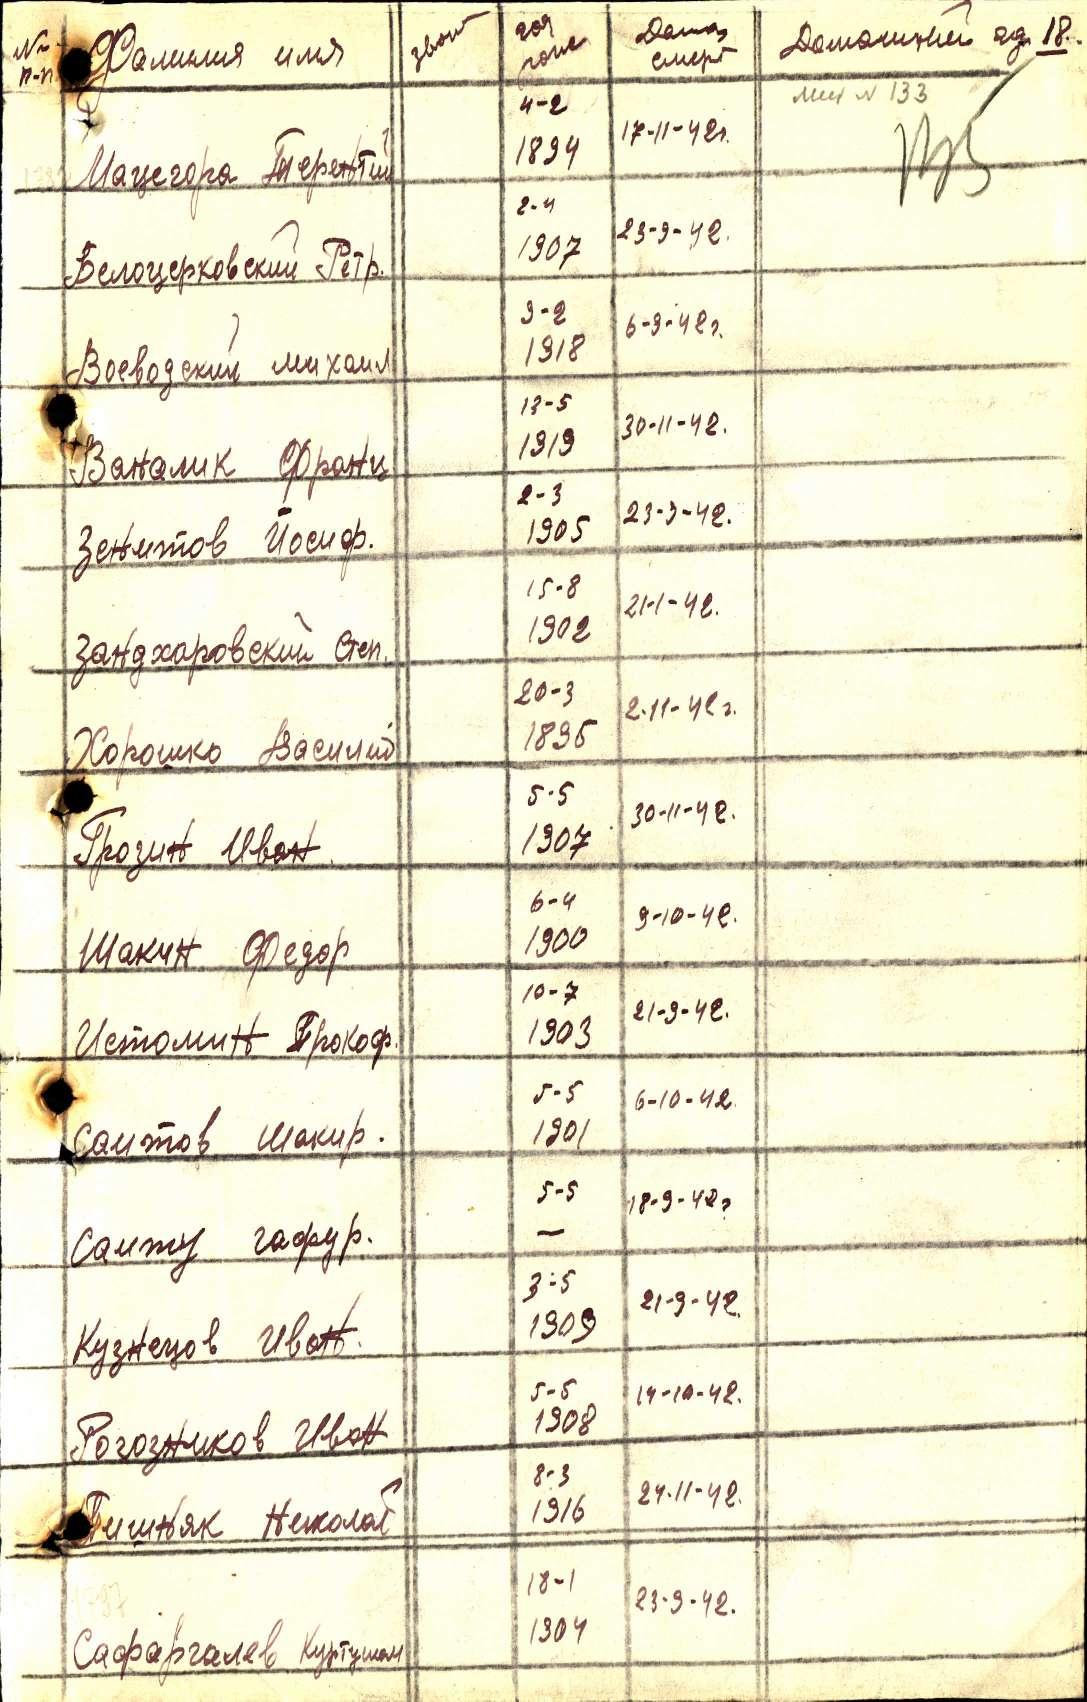 № п-п Фамилия имя зван год рож Дата смерт Домашний ад. 18.
мин № 133
Мацегора Терентий 4-2 1894 17-11-42г.
Белоцерковский Петр. 2-4 1907 23-9-42.
Воеводский михаил 9-2 1918 6-9-42г.
Ваналик Франц 13-5 1919 30-11-42.
Зенитов Йосиф. 2-3 1905 23-9-42.
Зандхаровский Степ. 15-8 1902 21-1-42.
Хорошко Василий 20-3 1896 2-11-42г.
Грозин Иван. 5-5 1907 30-11-42.
Шакин Федор 6-4 1900 9-10-42.
Истомин Прокоф. 10-7 1903 21-9-42.
Саитов Шакир. 5-5 1901 6-10-42
Саиту гафур. 5-5 — 18-9-42г
Кузнецов Иван. 3-5 1909 21-9-42.
Рогозников Иван 5-5 1908 14-10-42.
Пишняк Николай 8-3 1916 24-11-42.
Сафаргалев 18-1 1904 23-9-42.